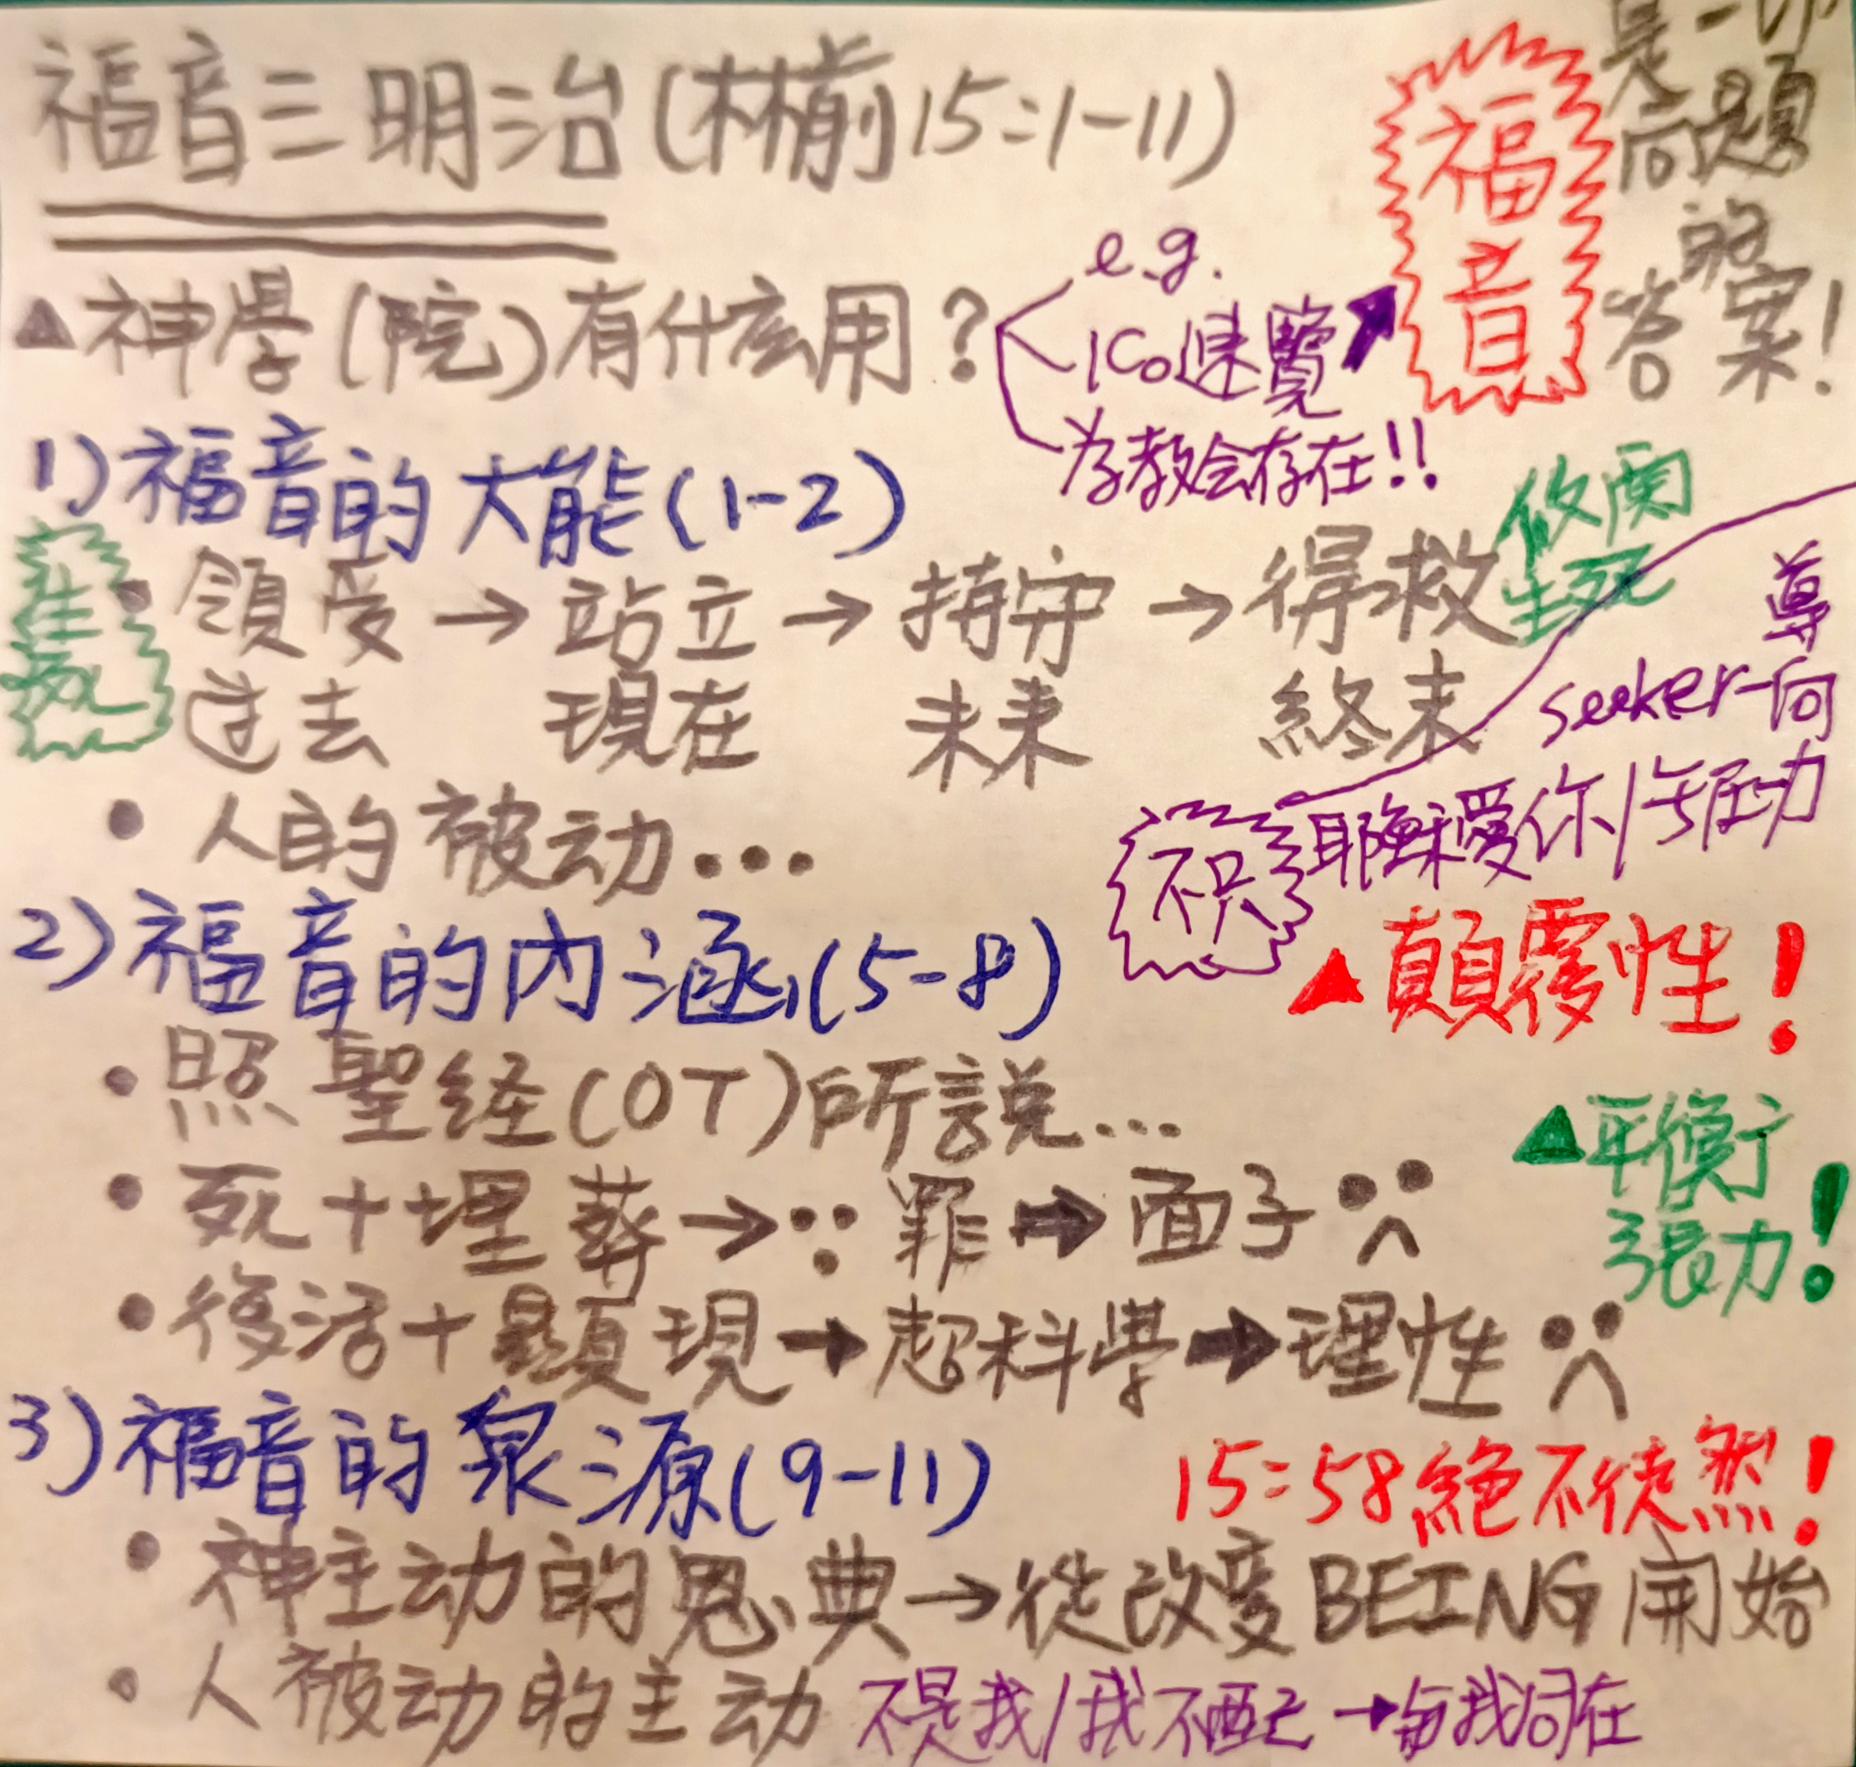 福音三明治(林前15:1-11)
福音
是一切
問題
的
答案!
▲神學(院)有什么用?
e.g.
1Co速覽
为教会存在!!
1)福音的大能(1-2)
攸関
生死
• 領受→站立→持守→得救
过去 現在 未来 終末
導向
seeker-
• 人的被动...
不只
耶穌愛你/
2)福音的内涵(5-8)
▲顛覆性!
• 照聖経(OT)所説...
▲平衡
張力!
• 死+埋葬→罪→面子
• 復活+顯現→超科學→理性
3)福音的泉源(9-11)
15:58絕不徒然!
• 神主动的恩典→從改变BEING開始
• 人被动的主动 不是我/我不配→与我同在